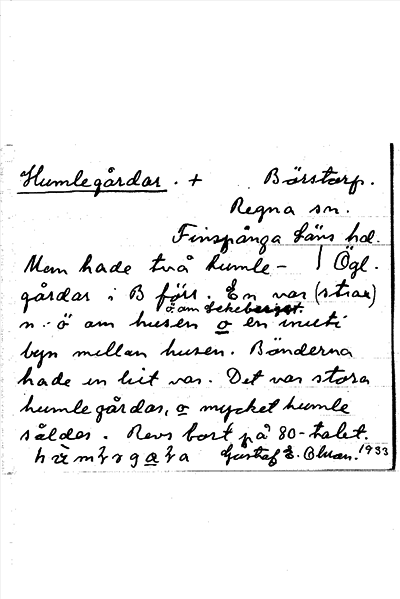 Humlegårdar. + Börstorp.
Regna sn.
Finspånga läns hd.
Man hade två humle- Ögl.
gårdar i B förr. En var (strax)
ö om
n. ö om husen o en inuti
byn mellan husen. Bönderna
hade en bit var. Det var stora
humlegårdar, o mycket humle
såldes. Revs bort på 80-talet.
Gustaf E. Olsson. 1933